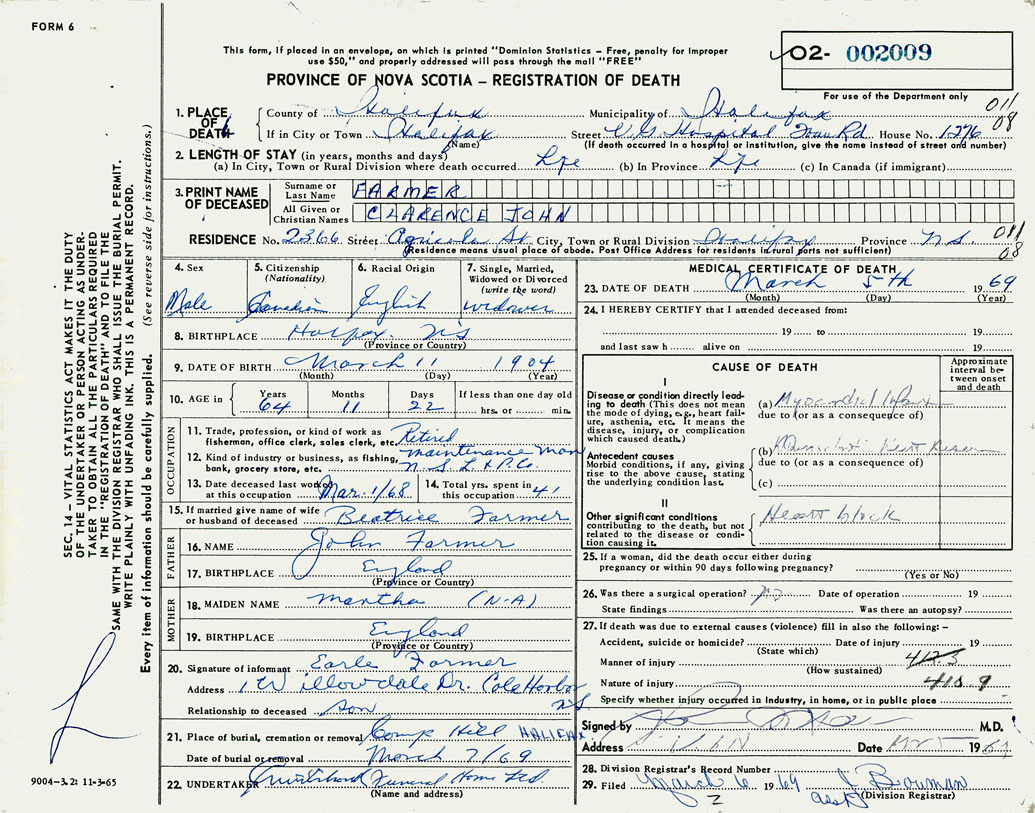 FORM 6
This form, if placed in an envelope, on which is printed "Dominion Statistics – Free, penalty for improper
use $50," and properly addressed will pass through the mail "FREE"
O2- 002009
PROVINCE OF NOVA SCOTIA – REGISTRATION OF DEATH
For use of the Department only
1. PLACE OF DEATH
County of Halifax Municipality of Halifax 011/08
If in City or Town Halifax Street V.G. Hospital Tower Rd House No. 1276
(Name) (If death occurred in a hospital or institution, give the name instead of street and number)
2. LENGTH OF STAY (in years, months and days)
(a) In City, Town or Rural Division where death occurred Life (b) In Province Life (c) In Canada (if immigrant)
3. PRINT NAME OF DECEASED
Surname or Last Name FARMER
All Given or Christian Names CLARENCE JOHN
RESIDENCE No. 2366 Street Agricola St City, Town or Rural Division Halifax Province N.S. 011/08
(Residence means usual place of abode. Post Office Address for residents in rural parts not sufficient)
4. Sex
Male
5. Citizenship
(Nationality)
Canadian
6. Racial Origin
English
7. Single, Married,
Widowed or Divorced
(write the word)
widower
8. BIRTHPLACE Halifax NS
(Province or Country)
9. DATE OF BIRTH March 11 1904
(Month) (Day) (Year)
10. AGE in Years Months Days If less than one day old
64 11 22 hrs. or min.
OCCUPATION
11. Trade, profession, or kind of work as Retired
fisherman, office clerk, sales clerk, etc.
maintenance man
12. Kind of industry or business, as fishing, N.S.L. & P. Co.
bank, grocery store, etc.
13. Date deceased last worked Mar. 1/68
at this occupation
14. Total yrs. spent in
this occupation 41
15. If married give name of wife
or husband of deceased Beatrice Farmer
FATHER
16. NAME John Farmer
17. BIRTHPLACE England
(Province or Country)
MOTHER
18. MAIDEN NAME martha (N-A)
19. BIRTHPLACE England
(Province or Country)
20. Signature of informant Earle Farmer
Address 1 Willowdale Dr. Cole Harbor
NS
Relationship to deceased son
21. Place of burial, cremation or removal Camp Hill HALIFAX
Date of burial or removal March 7/69
22. UNDERTAKER Funeral Home Ltd.
(Name and address)
MEDICAL CERTIFICATE OF DEATH
23. DATE OF DEATH March 5th 1969
(Month) (Day) (Year)
24. I HEREBY CERTIFY that I attended deceased from:
19 to 19
and last saw h alive on 19
CAUSE OF DEATH
Approximate
interval be-
tween onset
and death
I
Disease or condition directly lead-
ing to death (This does not mean
the mode of dying, e.g., heart fail-
ure, asthenia, etc. It means the
disease, injury, or complication
which caused death.)
(a) Myocardial Infarc
due to (or as a consequence of)
Antecedent causes
Morbid conditions, if any, giving
rise to the above cause, stating
the underlying condition last.
(b) Heart Disease
due to (or as a consequence of)
(c)
II
Other significant conditions
contributing to the death, but not
related to the disease or condi-
tion causing it.
Heart block
25. If a woman, did the death occur either during
pregnancy or within 90 days following pregnancy?
(Yes or No)
26. Was there a surgical operation? no Date of operation 19
State findings Was there an autopsy?
27. If death was due to external causes (violence) fill in also the following:–
Accident, suicide or homicide? Date of injury 19
(State which)
Manner of injury 412.3
(How sustained)
Nature of injury 410.9
Specify whether injury occurred in Industry, in home, or in public place
Signed by M.D.
Address Date 1969
28. Division Registrar's Record Number
29. Filed March 6 1969 J Bowman
2 asst (Division Registrar)
SEC. 14 – VITAL STATISTICS ACT MAKES IT THE DUTY
OF THE UNDERTAKER OR PERSON ACTING AS UNDER-
TAKER TO OBTAIN ALL THE PARTICULARS REQUIRED
IN THE "REGISTRATION OF DEATH" AND TO FILE THE
SAME WITH THE DIVISION REGISTRAR WHO SHALL ISSUE THE BURIAL PERMIT.
WRITE PLAINLY WITH UNFADING INK. THIS IS A PERMANENT RECORD.
Every item of information should be carefully supplied. (See reverse side for instructions.)
9004-3.2: 11-3-65